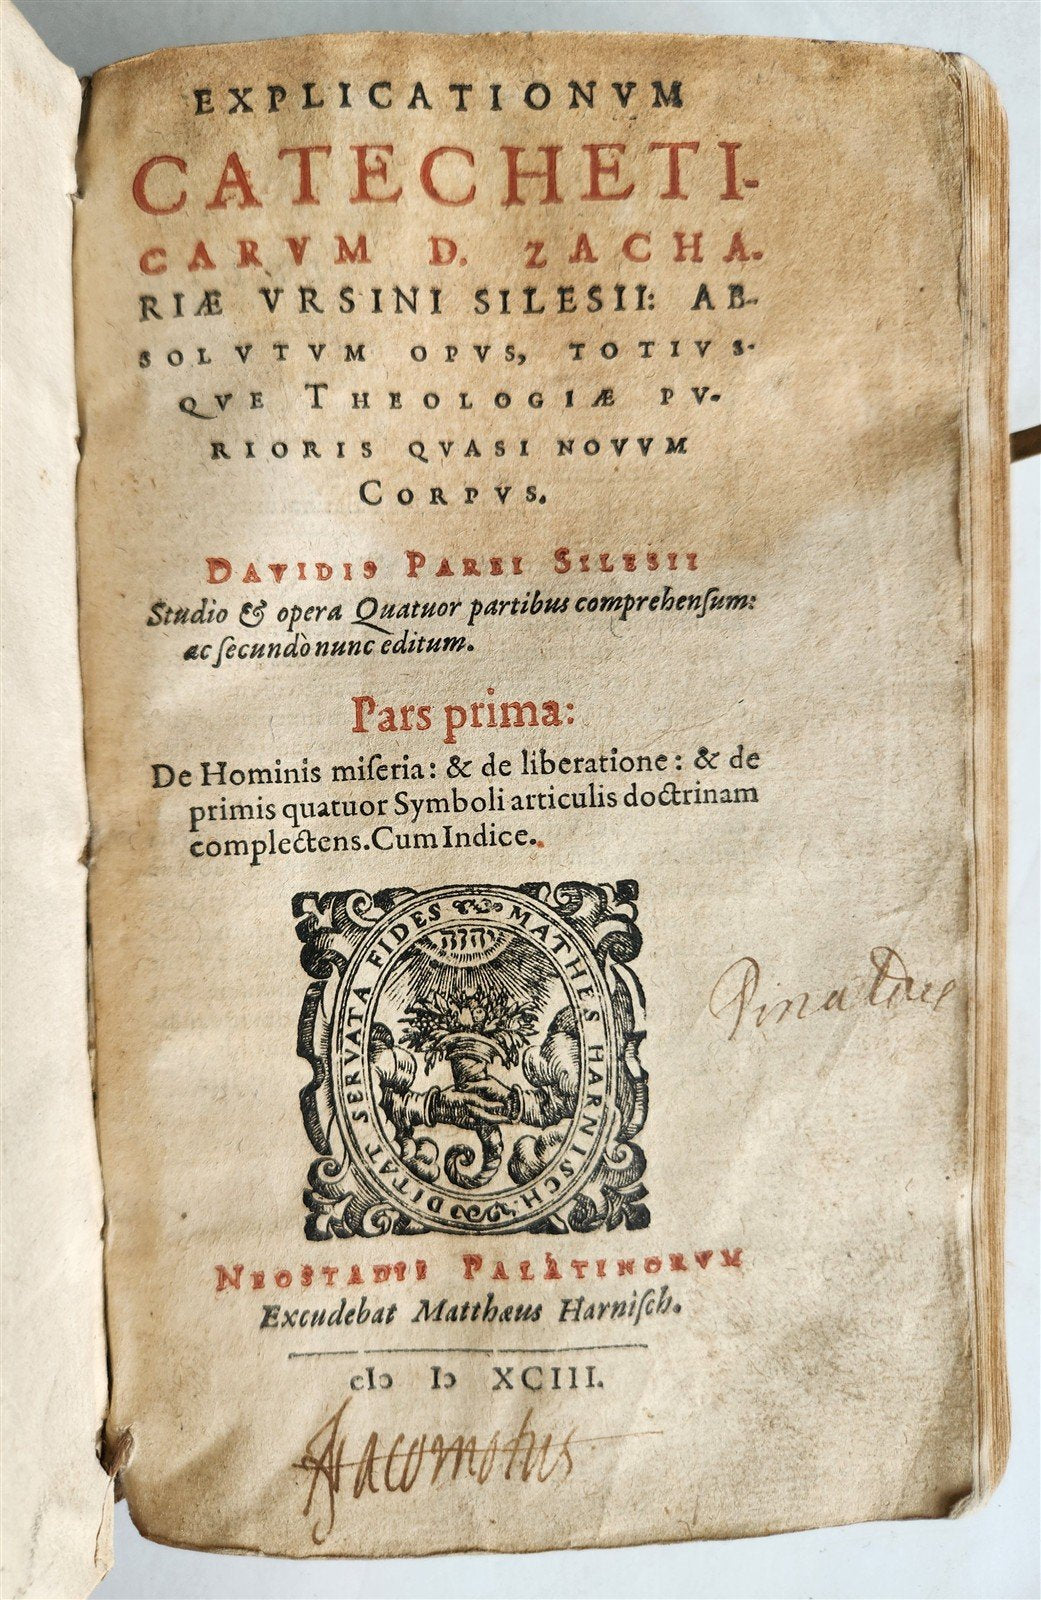 EXPLICATIONVM
CATECHETI-
CARVM D. ZACHA-
RIÆ VRSINI SILESII: AB-
SOLVTVM OPVS, TOTIVS-
QVE THEOLOGIÆ PV-
RIORIS QVASI NOVVM
CORPVS.
DAVIDIS PAREI SILESII
Studio & opera Quatuor partibus comprehenſum:
ac ſecundò nunc editum.
Pars prima:
De Hominis miſeria: & de liberatione: & de
primis quatuor Symboli articulis doctrinam
complectens. Cum Indice.
DITAT SERVATA FIDES MATHES HARNISCH.
יהוה
NEOSTADII PALATINORVM
Excudebat Matthæus Harniſch.
cIↄ Iↄ XCIII.